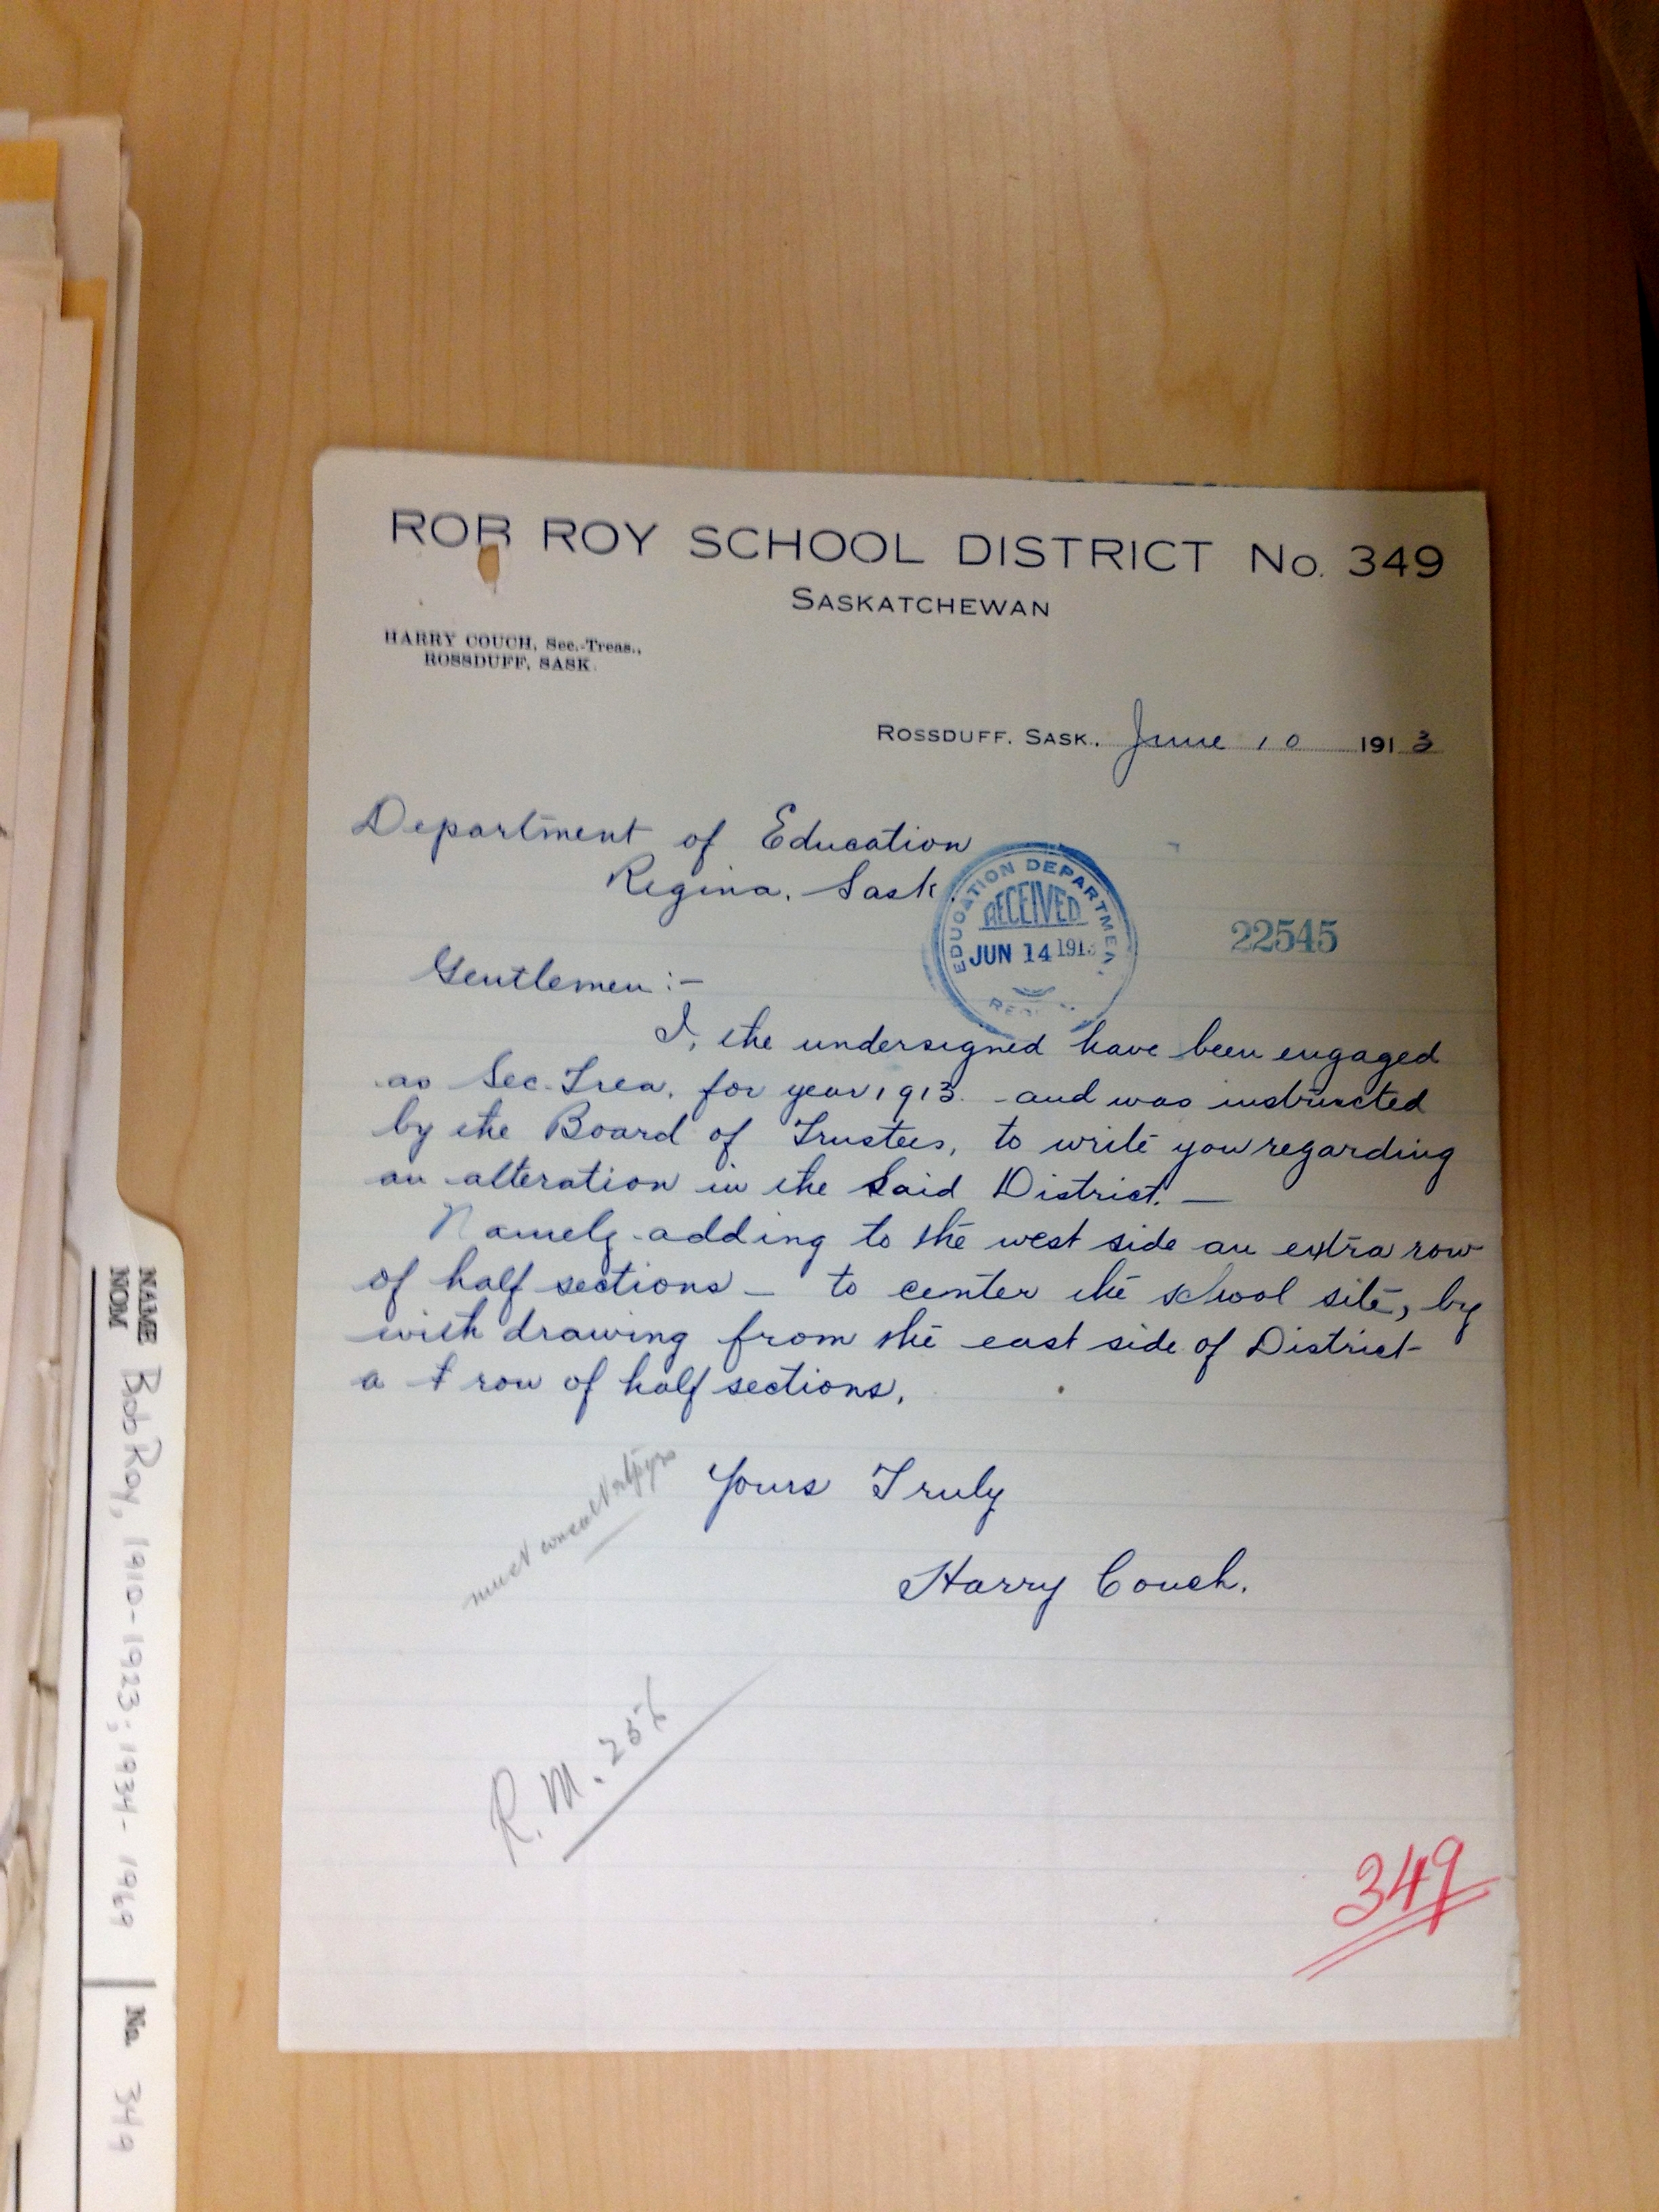 ROB ROY SCHOOL DISTRICT No. 349
SASKATCHEWAN
HARRY COUCH, Sec.-Treas.,
ROSSDUFF, SASK.
ROSSDUFF, SASK. June 10 1913
Department of Education
Regina, Sask.
EDUCATION DEPARTMEN
RECEIVED
JUN 14 191
22545
Gentlemen:-
I, the undersigned have been engaged
as Sec-Trea. for year 1913 and was instructed
by the Board of Trustees, to write you regarding
an alteration in the Said District. —
Namely adding to the west side an extra row
of half sections — to center the school site, by
with drawing from the east side of District
a row of half sections.
Yours Truly
Harry Couch.
must
R.M. 256
349
NAME Bob Roy, 1910-1923; 1934-1969 No. 349
NOM